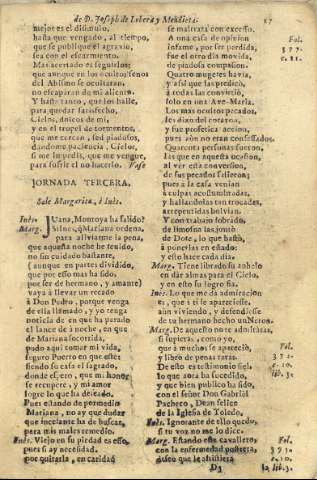 de D. Joseph de Lobera y Mendieta. 27
mejor es el disimulo,
hasta que vengado, al tiempo,
que se publique el agravio,
sea con el escarmiento.
Mas acertado es seguirlos;
que aunque en los ocultos senos
del Abismo se ocultaran,
no escaparán de mi aliento.
Y hasta tanto, que los halle,
para quedar satisfecho,
Cielos, dueleos de mi,
y en el tropel de tormentos,
que me cercan, sed piadosos,
dandome paciencia, Cielos,
si me impedis, que me vengue,
para sufrir el no hacerlo. Vase
JORNADA TERCERA.
Sale Margarita, è Inès.
Inès. JUana, Montoya ha salido?
Marg. Si Inès, q̃ Mariana ordena,
para aliviarme la pena,
que aquesta noche he tenido,
no sin cuidado bastante,
(aunque en partes dividido,
que por esso mas ha sido,
por ser de hermano, y amante)
vaya à llevar un recado
à Don Pedro, porque venga
de ella llamado, y yo tenga
noticia de en que ha parado
el lance de à noche, en que
de Mariana socorrida,
pudo aqui tomar mi vida,
seguro Puerto en que estè:
siendo su casa el sagrado,
donde espero, que mi honor
se recupere, y mi amor
logre lo que ha deseado.
Pues estando de por medio
Mariana, no ay que dudar
que incesante ha de buscar,
para mis males remedio.
Inès. Viejo en su piedad es esso,
pues si ay necesidad,
por quitarla, en caridad
se maltrata con excesso.
A una casa de opinion
infame, por ser perdida,
fue el otro dia movida,
de piadosa compasion.
Quatro mugeres havia,
y assi que las predicò,
à todas las convirtiò,
solo en una Ave-Maria.
Los mas ocultos pecados,
les dixo del corazon,
y fue profetica accion,
pues aun no eran confessados.
Quarenta personas fueron,
las que en aquesta ocasion,
al vèr esta conversion,
de sus pecados salieron;
pues à la casa venian
à culpas acostumbradas,
y hallandolas tan trocadas,
arrepentidas bolvian.
Y con trabajo sobrado,
de limosna las juntò
de Dote, lo que bastò,
à ponerlas en estado;
y esto hace cada dia.
Marg. Tiene librado su anhelo
en dàr almas para el Cielo,
y en esto su logro fia.
Inès. Lo que me dà admiracion
es, que à ti se apareciesse,
aun viviendo, y defendiesse
de tu hermano hecho un Neron.
Marg. De aquesto no te admiràras,
si supieras, como yo,
que à muchos se apareciò,
y librò de penas raras.
De esto es testimonio fiel
lo que aora ha sucedido,
y que bien publico ha sido,
con el señor Don Gabriel
Pacheco, Dean felice
de la Iglesia de Toledo.
Inès. Ignorante de ello quedo,
si tu voz no me lo dice.
Marg. Estando este cavallero
con la enfermedad postrera,
quiso que le assistiera
D3 la
Fol.
377.
c. 21.
Fol.
372.
c. 10.
lib. 3.
Fol.
373.
c. 10.
lib. 3.